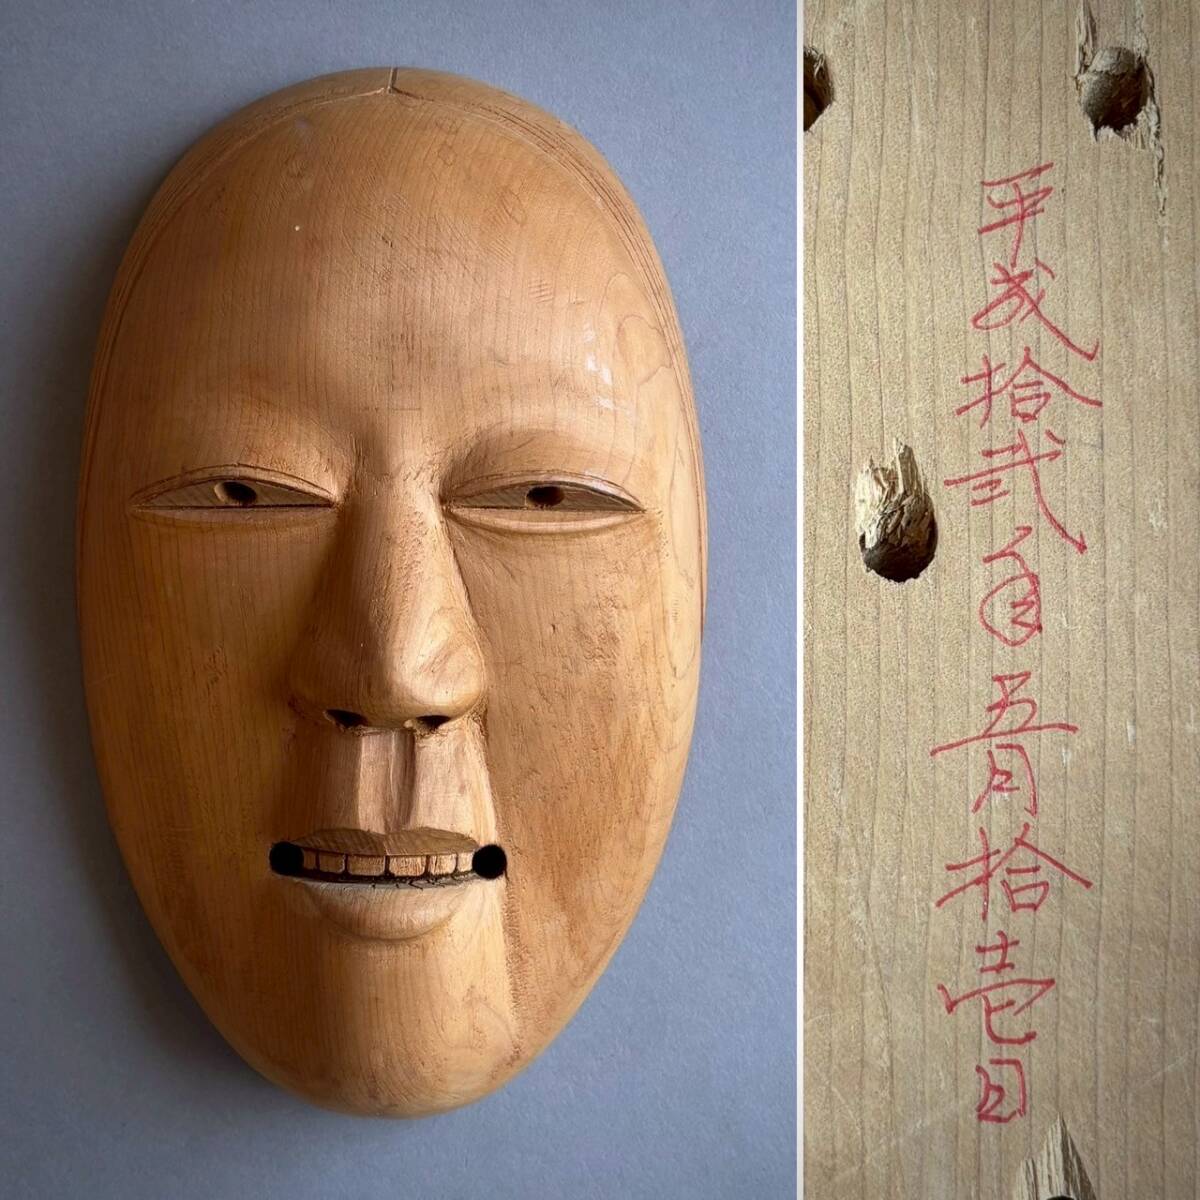 平成拾弐年五月拾壱日